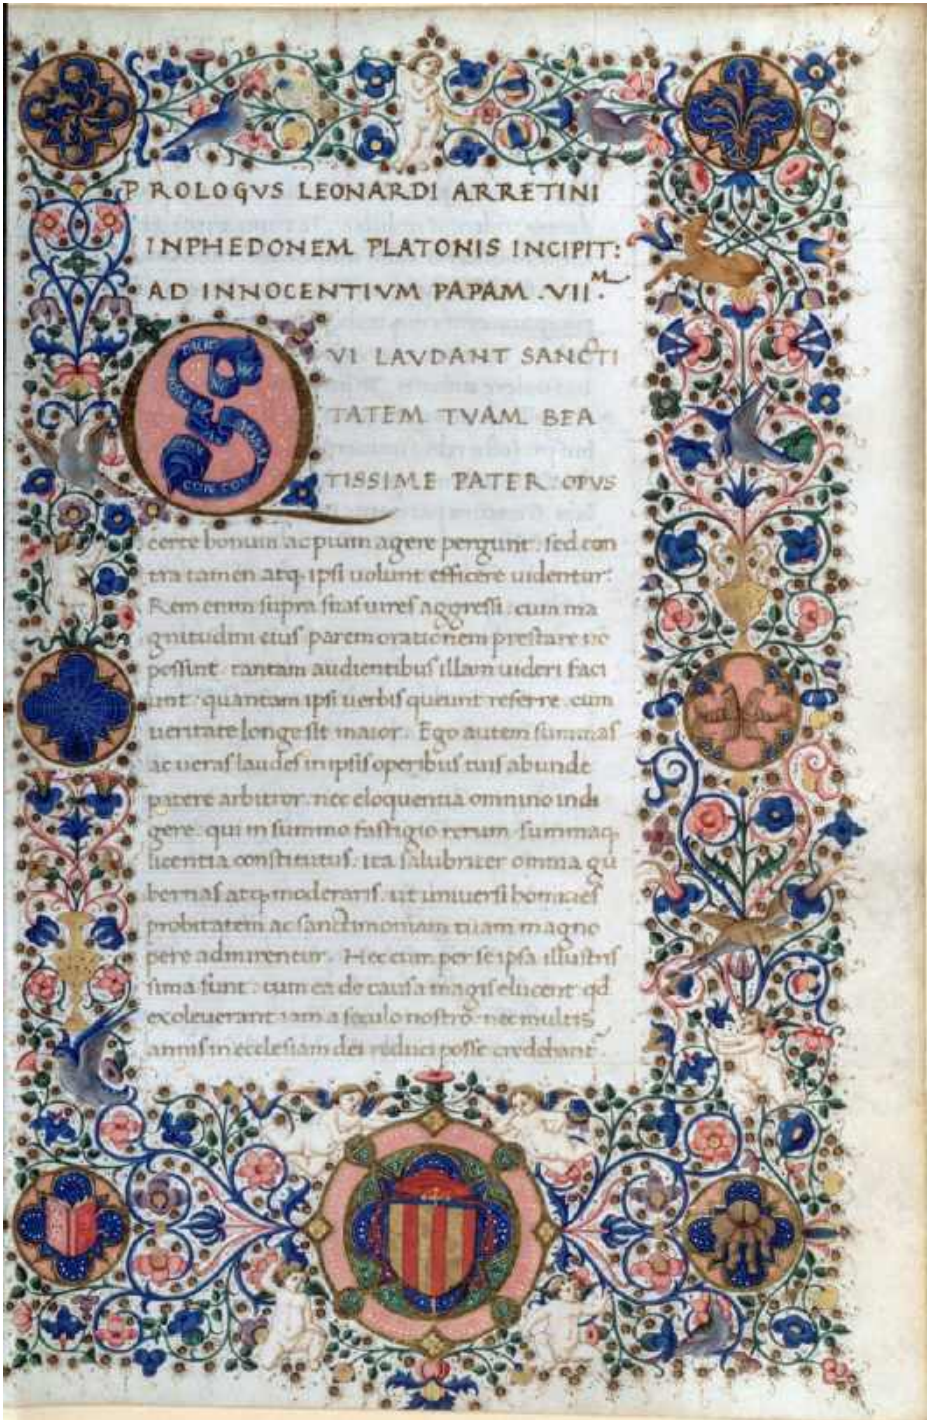 PROLOGVS LEONARDI ARRETINI
INPHEDONEM PLATONIS INCIPIT:
AD INNOCENTIVM PAPAM .VII.M
QVI LAVDANT SANCTI
TATEM TVAM BEA
TISSIME PATER: OPVS
certe bonum ac pium agere pergunt. sed con
tra tamen atq; ipsi uolunt efficere uidentur.
Rem enim supra suas uires aggressi: cum ma
gnitudini eius parem orationem prestare nō
possint. tantam audientibus illam uideri faci
unt. quantam ipsi uerbis queunt referre. cum
ueritate longe sit maior. Ego autem summas
ac ueras laudes in ipsis operibus tuis abunde
patere arbitror. nec eloquentia omnino indi
gere. qui in summo fastigio rerum summaq;
licentia constitutus. ita salubriter omnia gu
bernas atq; moderaris. ut uniuersi homīes
probitatem ac sanctimoniam tuam magno
pere admirentur. Hec cum per se ipsa illustris
sima sunt: tum ea de causa magis elucent qd
exoleuerant iam a seculo nostro. nec multis
annis in ecclesiam dei reduci posse credebant~